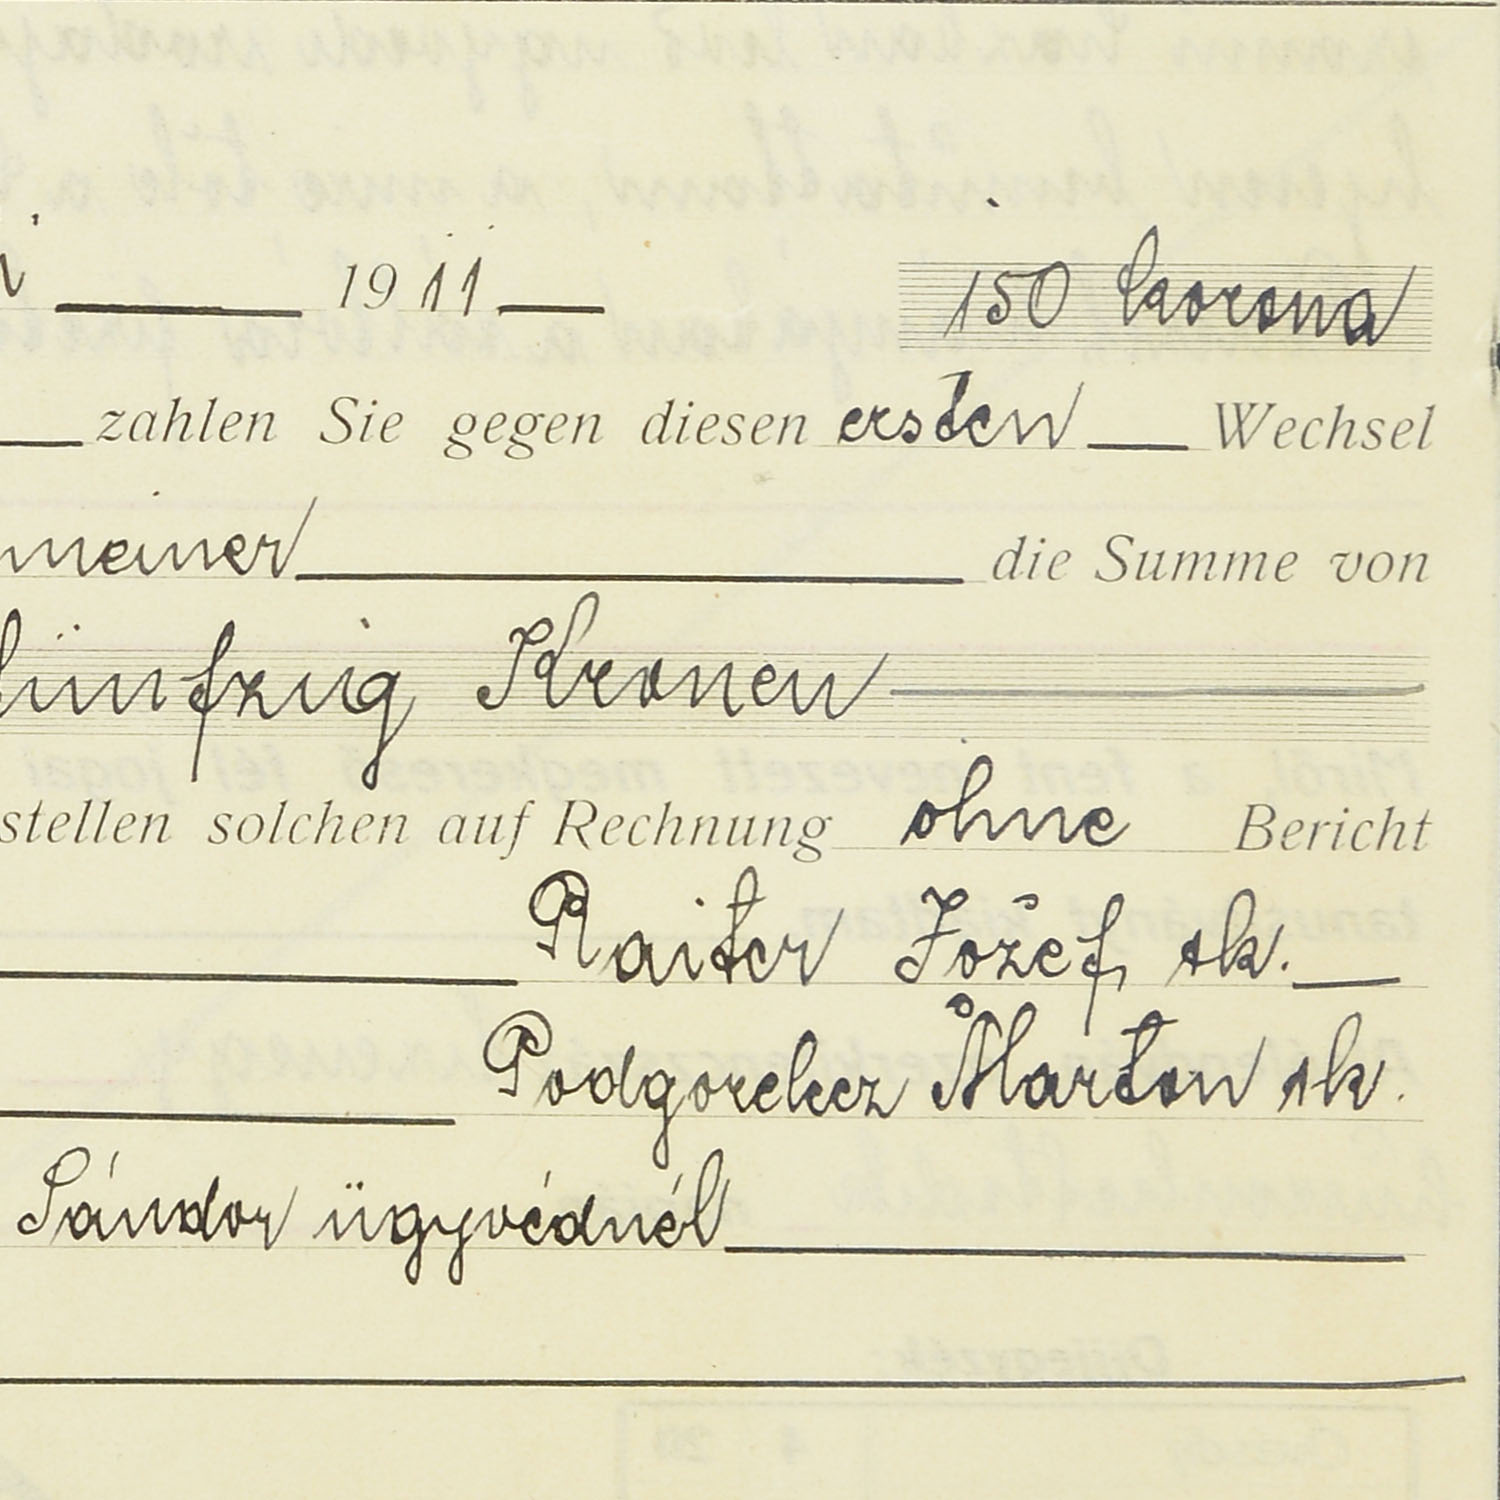 1911 150 korona
zahlen Sie gegen diesen ersten Wechsel
meiner die Summe von
fünfzig Kronen
stellen solchen auf Rechnung ohne Bericht
Raiter József, sk.
Podgorelecz Márton sk.
Sándor ügyvédnél